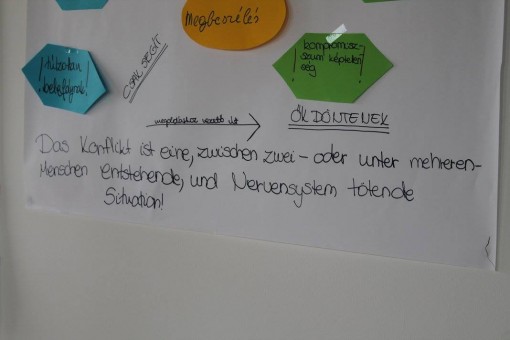 Megbeszélés
CSAK SEGÍT
kompromisz-
szum képtelen
ség
megoldáshoz vezető út
ŐK DÖNTENEK
Das Konflickt ist eine, zwischen zwei - oder unter mehreren-
Menschen entstehende, und Nervensystem tötende
Situation!